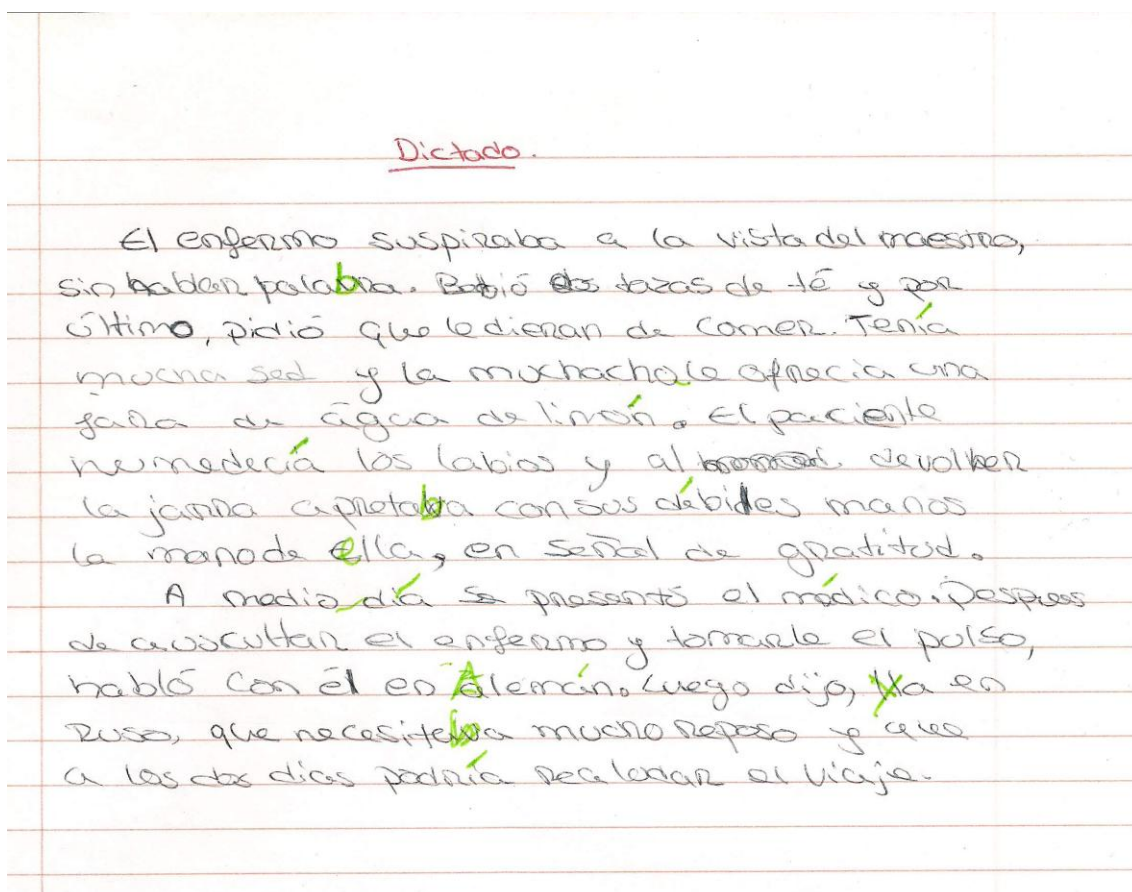 Dictado.
El enfermo suspiraba a la vista del maestro,
sin hablar palabra. Bebió dos tazas de té y por
último, pidió que le dieran de comer. Tenía
mucha sed y la muchacha le ofrecia una
jarra de água de limón. El paciente
humedecía los labios y al devolver
la jarra apretaba con sus débiles manos
la mano de ella, en señal de gratitud.
A medio día se presentó el médico. Despues
de auscultar el enfermo y tomarle el pulso,
habló con él en Alemán. Luego dijo, Ya en
Ruso, que necesitaba mucho reposo y que
a los dos dias podría el viaje.